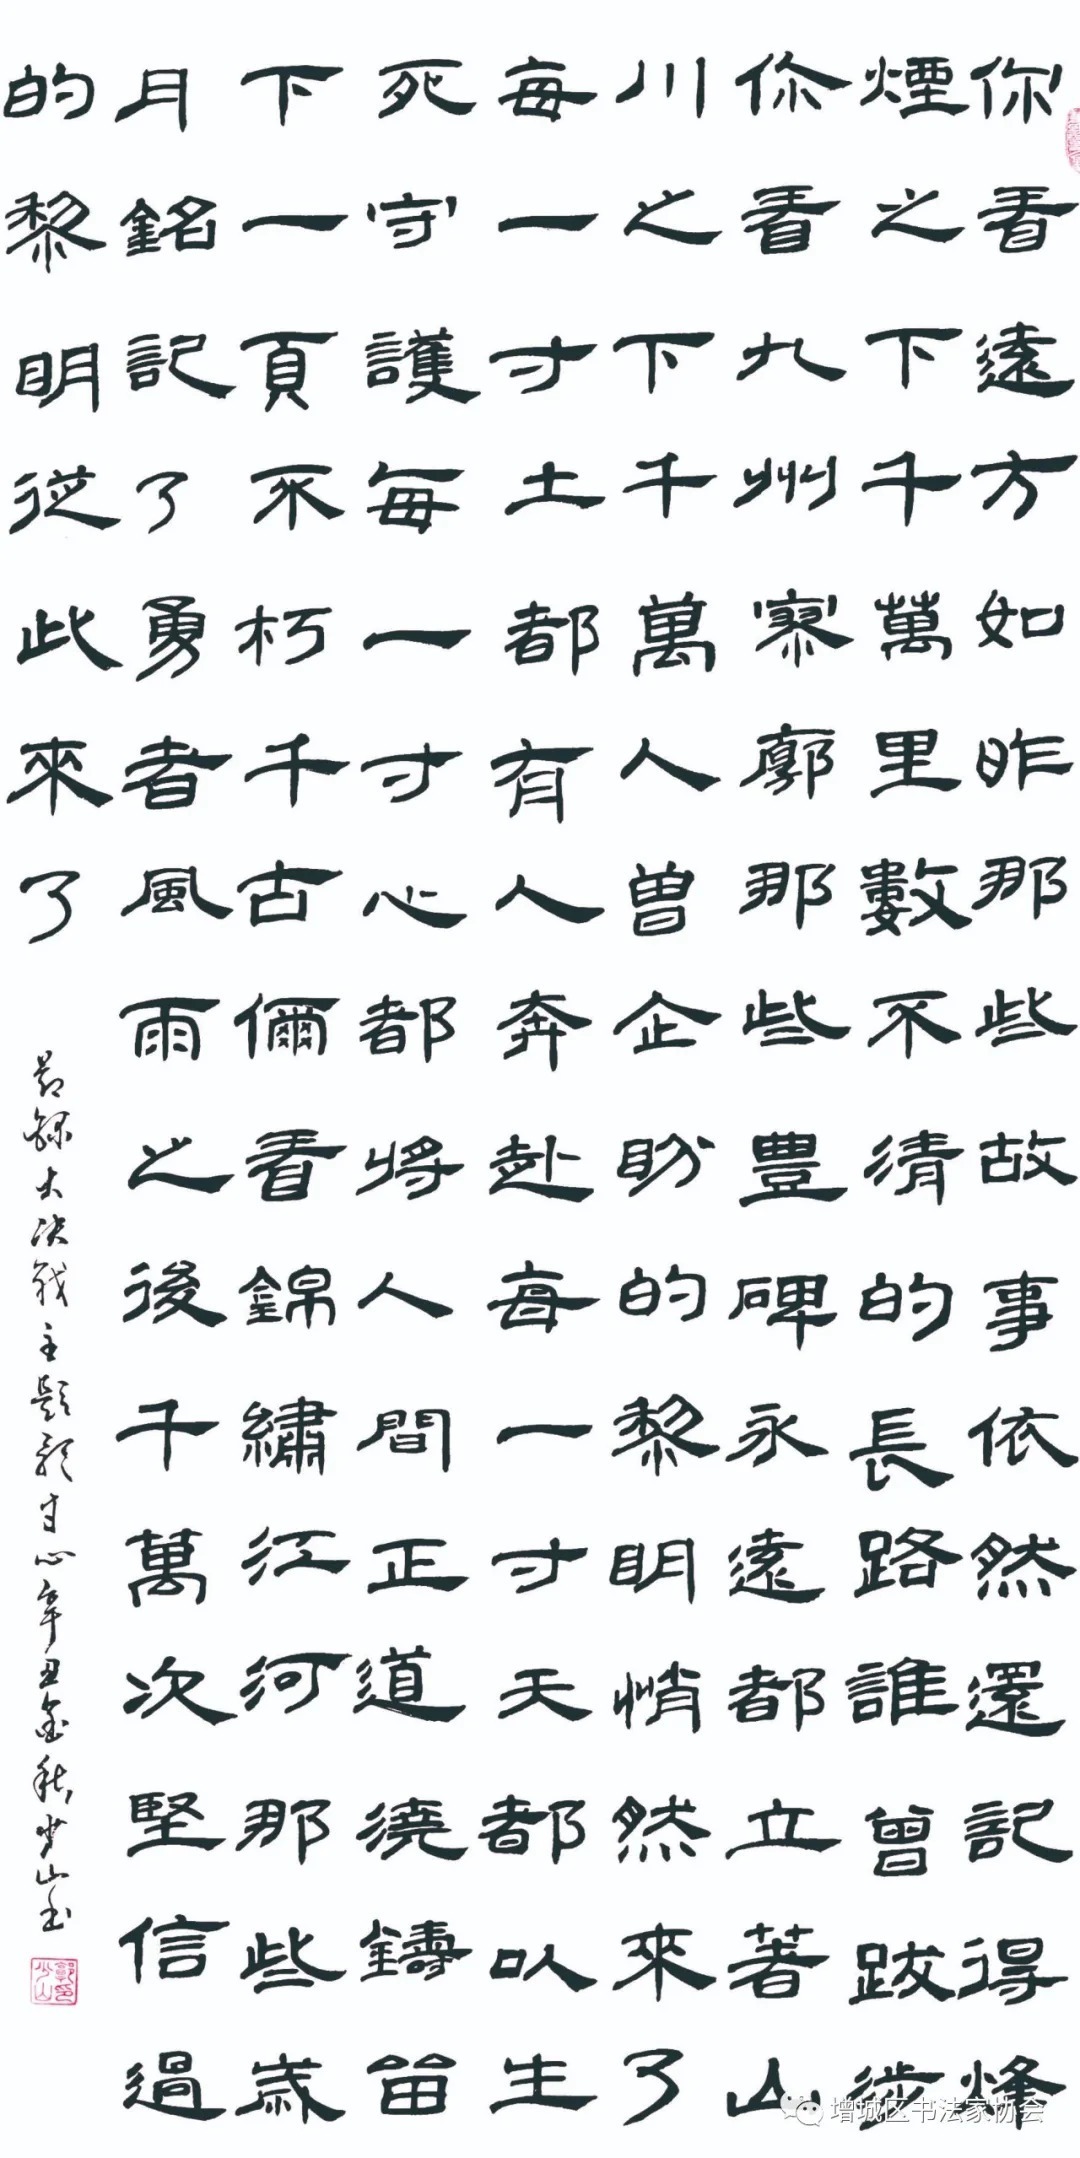 你看遠方如昨那些故事依然還記得烽
煙之下千萬里數不清的長路誰曾跋涉
你看九州寥廓那些豊碑永遠都立著山
川之下千萬人曾企盼的黎明悄然來了
每一寸土都有人奔赴每一寸天都以生
死守護每一寸心都將人間正道澆鑄留
下一頁不朽千古儞看錦繡江河那些歲
月銘記了勇者風雨之後千萬次堅信過
的黎明從此來了
錄大决戰主題歌寸心辛丑金秋少山书
增城区书法家协会